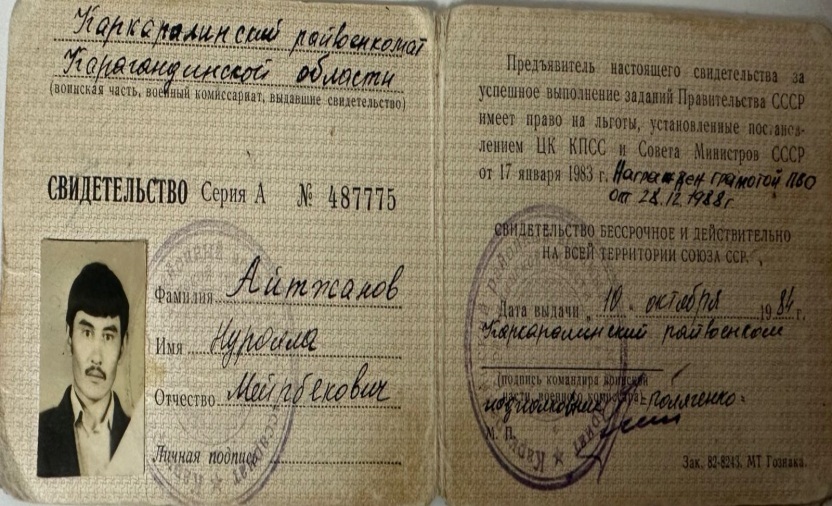 Каркаралинский райвоенкомат
Карагандинской области
(воинская часть, военный комиссариат, выдавшие свидетельство)
СВИДЕТЕЛЬСТВО Серия А № 487775
Фамилия Айтжанов
Имя Нурдилла
Отчество Мейрбекович
Личная подпись
Предъявитель настоящего свидетельства за
успешное выполнение заданий Правительства СССР
имеет право на льготы, установленные постанов-
лением ЦК КПСС и Совета Министров СССР
от 17 января 1983 г. Награжден грамотой ПВО
от 28.12.1988г
СВИДЕТЕЛЬСТВО БЕССРОЧНОЕ И ДЕЙСТВИТЕЛЬНО
НА ВСЕЙ ТЕРРИТОРИИ СОЮЗА ССР.
Дата выдачи „10 " октября 1984 г.
Каркаралинский райвоенком
(подпись командира воинской
части, военного комиссара)
подполковник
М. П.
Зак. 82-8243. МТ Гознака.